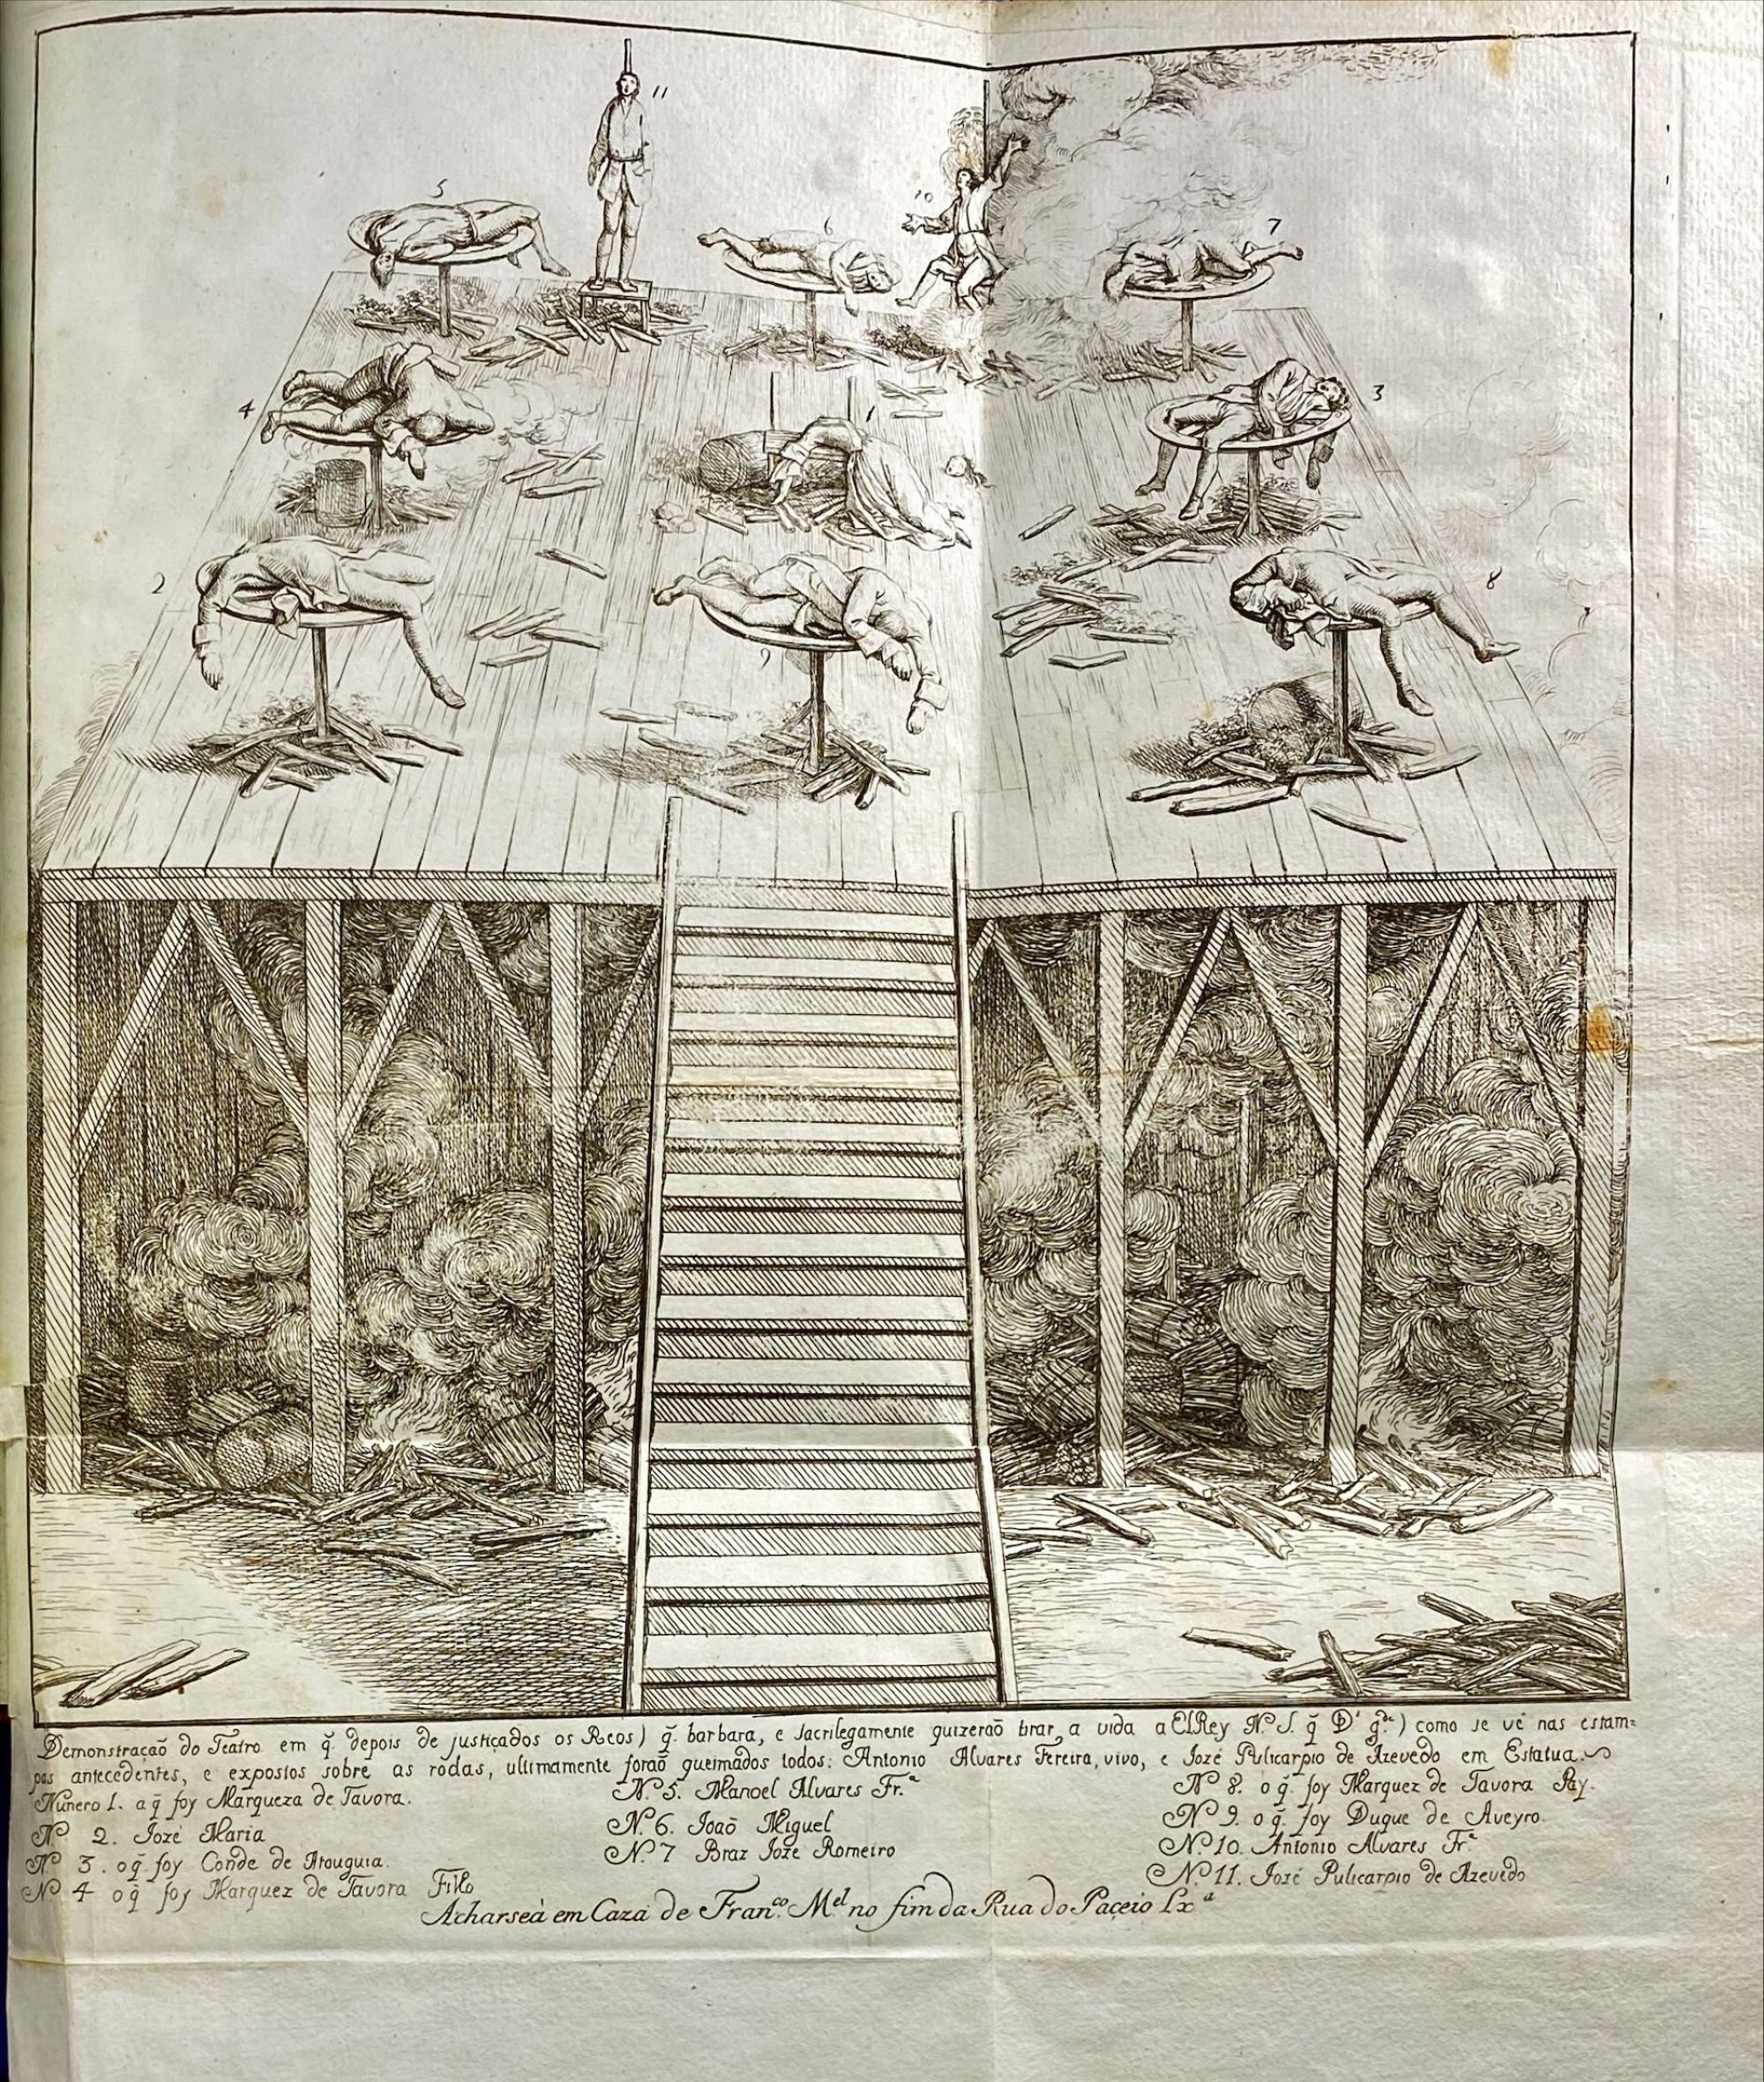 5
11
6
10
7
4
1
3
2
9
8
Demonstração do Teatro em q̃ depois de justiçados os Reos) q̃ barbara, e sacrilegamente quizeraõ tirar a vida a ElRey N. S. q̃ D.s g.de) como se vê nas estam=
pas antecedentes, e expostos sobre as rodas, ultimamente foraõ queimados todos: Antonio Alvares Fereira, vivo, e Jozé Pulicarpio de Azevedo em Estatua.
Numero 1. a q̃ foy Marqueza de Tavora.
N.º 2. Jozé Maria
N.º 3. o q̃ foy Conde de Atouguia.
N.º 4 o q̃ foy Marquez de Tavora Filho
N.º 5. Manoel Alvares Fr.ª
N.º 6. Joaõ Miguel
N.º 7 Braz Jozé Romeiro
N.º 8. o q̃ foy Marquez de Tavora Pay.
N.º 9. o q̃ foy Duque de Aveyro.
N.º 10. Antonio Alvares Fr.ª
N.º 11. Jozé Pulicarpio de Azevedo
Acharseà em Caza de Fran.co M.el no fim da Rua do Paçeio Lx.ª